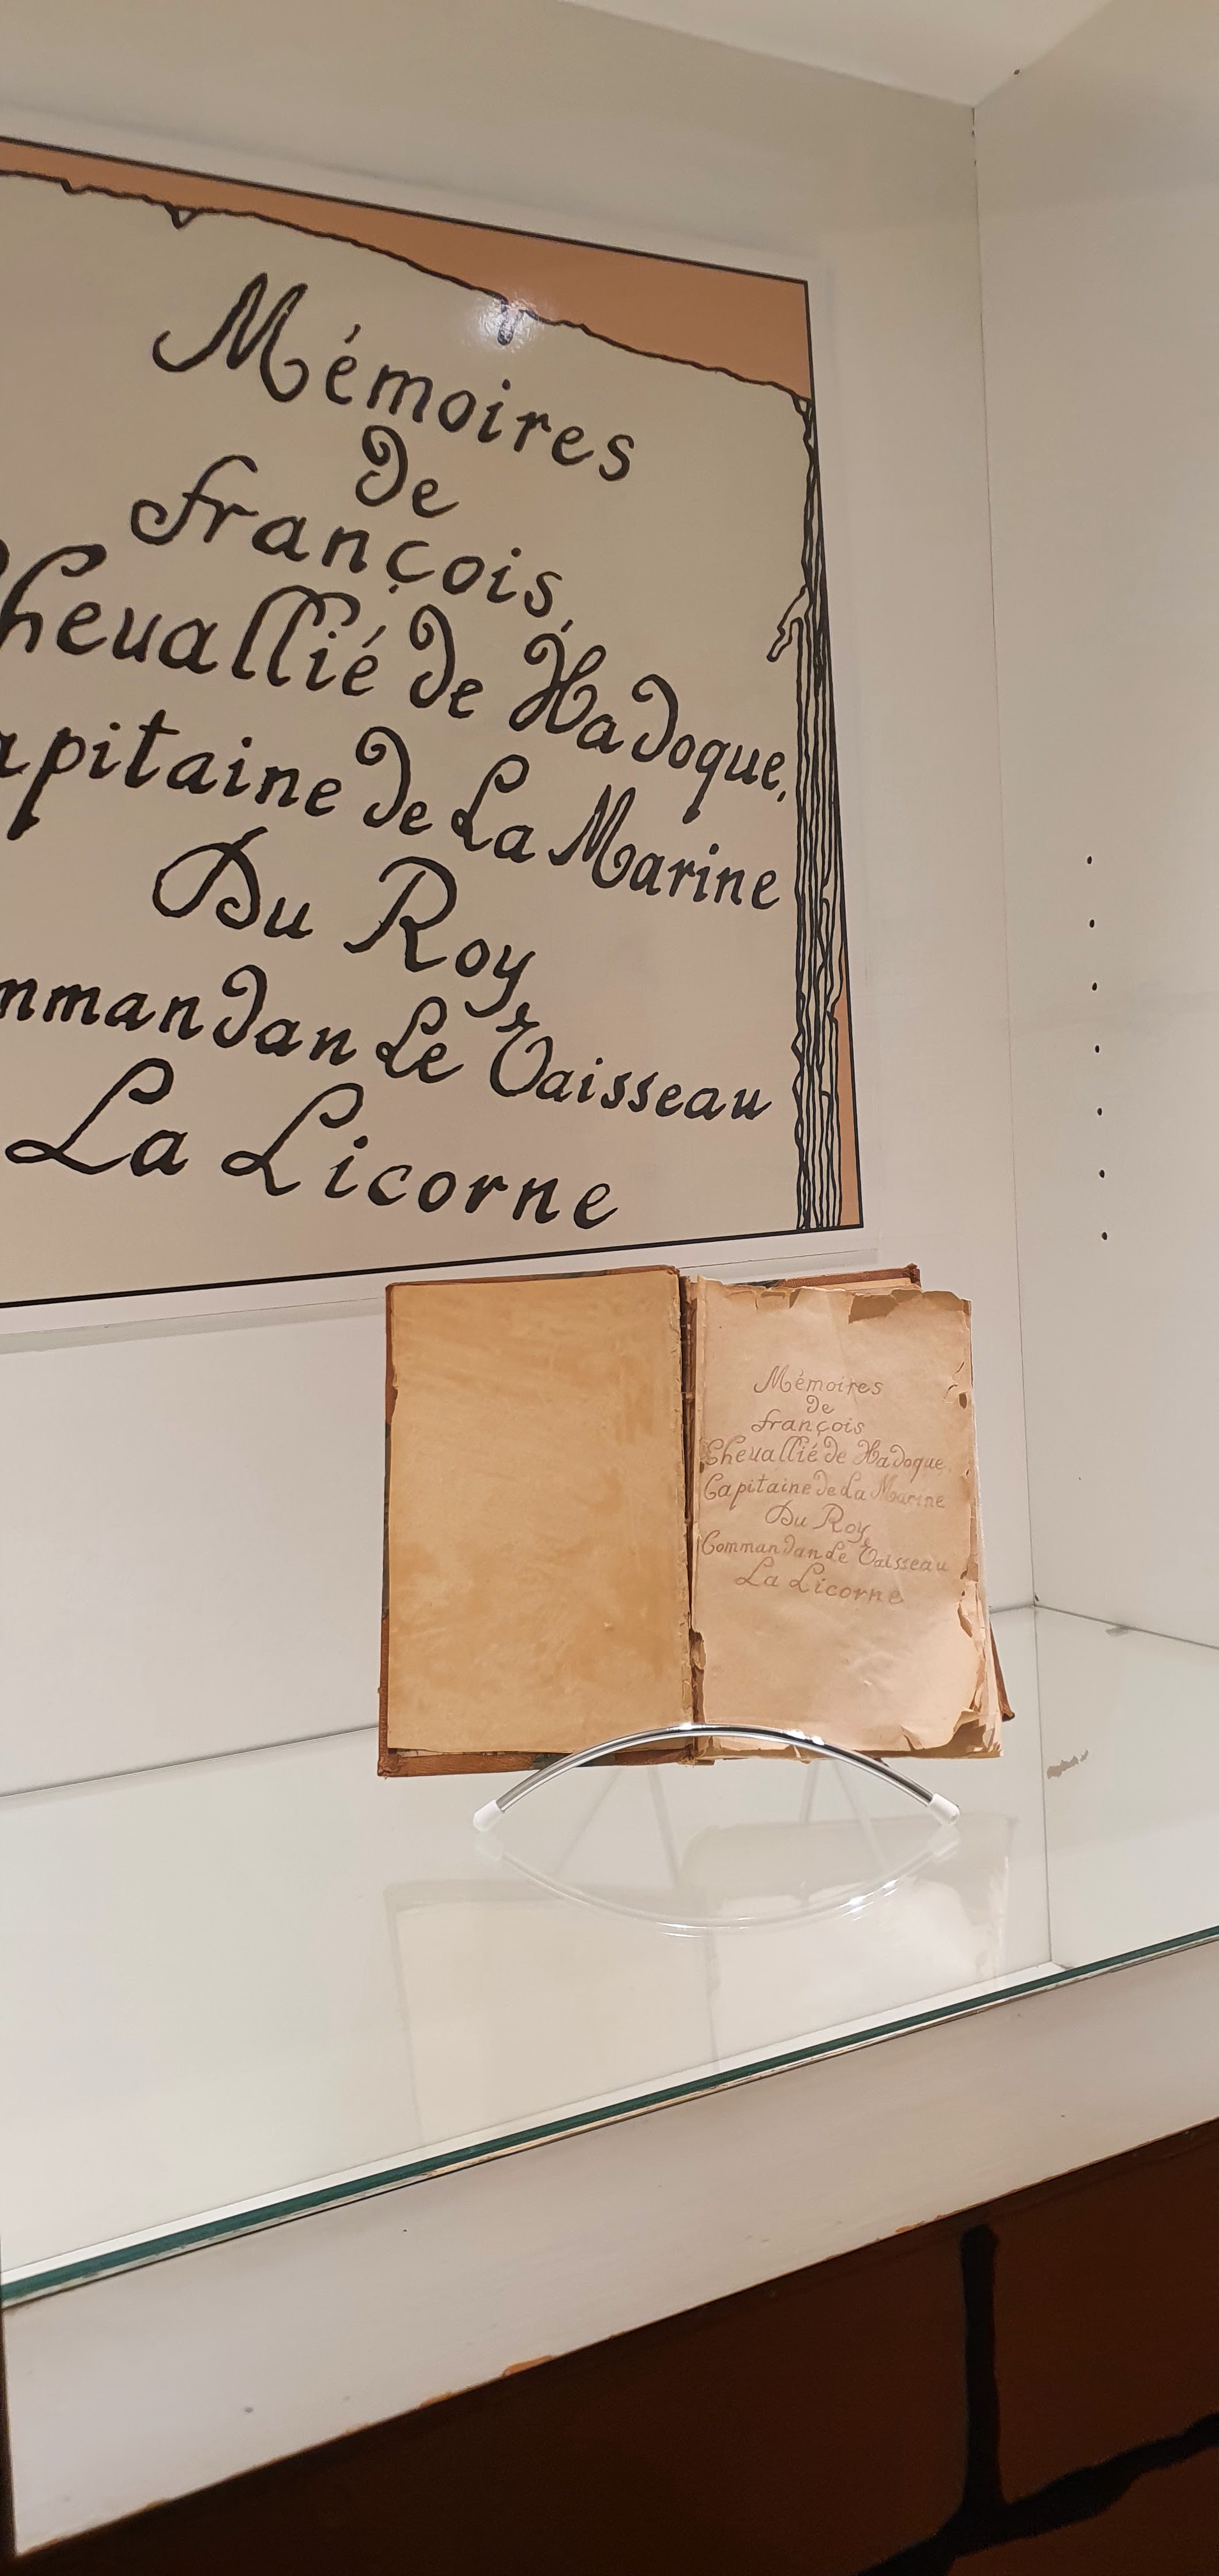 Mémoires
De
françois,
Chevallié de Hadoque,
apitaine de La Marine
Du Roy,
mmandan Le Vaisseau
La Licorne
Mémoires
De
françois
Chevallié de Hadoque,
Capitaine de La Marine
Du Roy,
Commandan Le Vaisseau
La Licorne